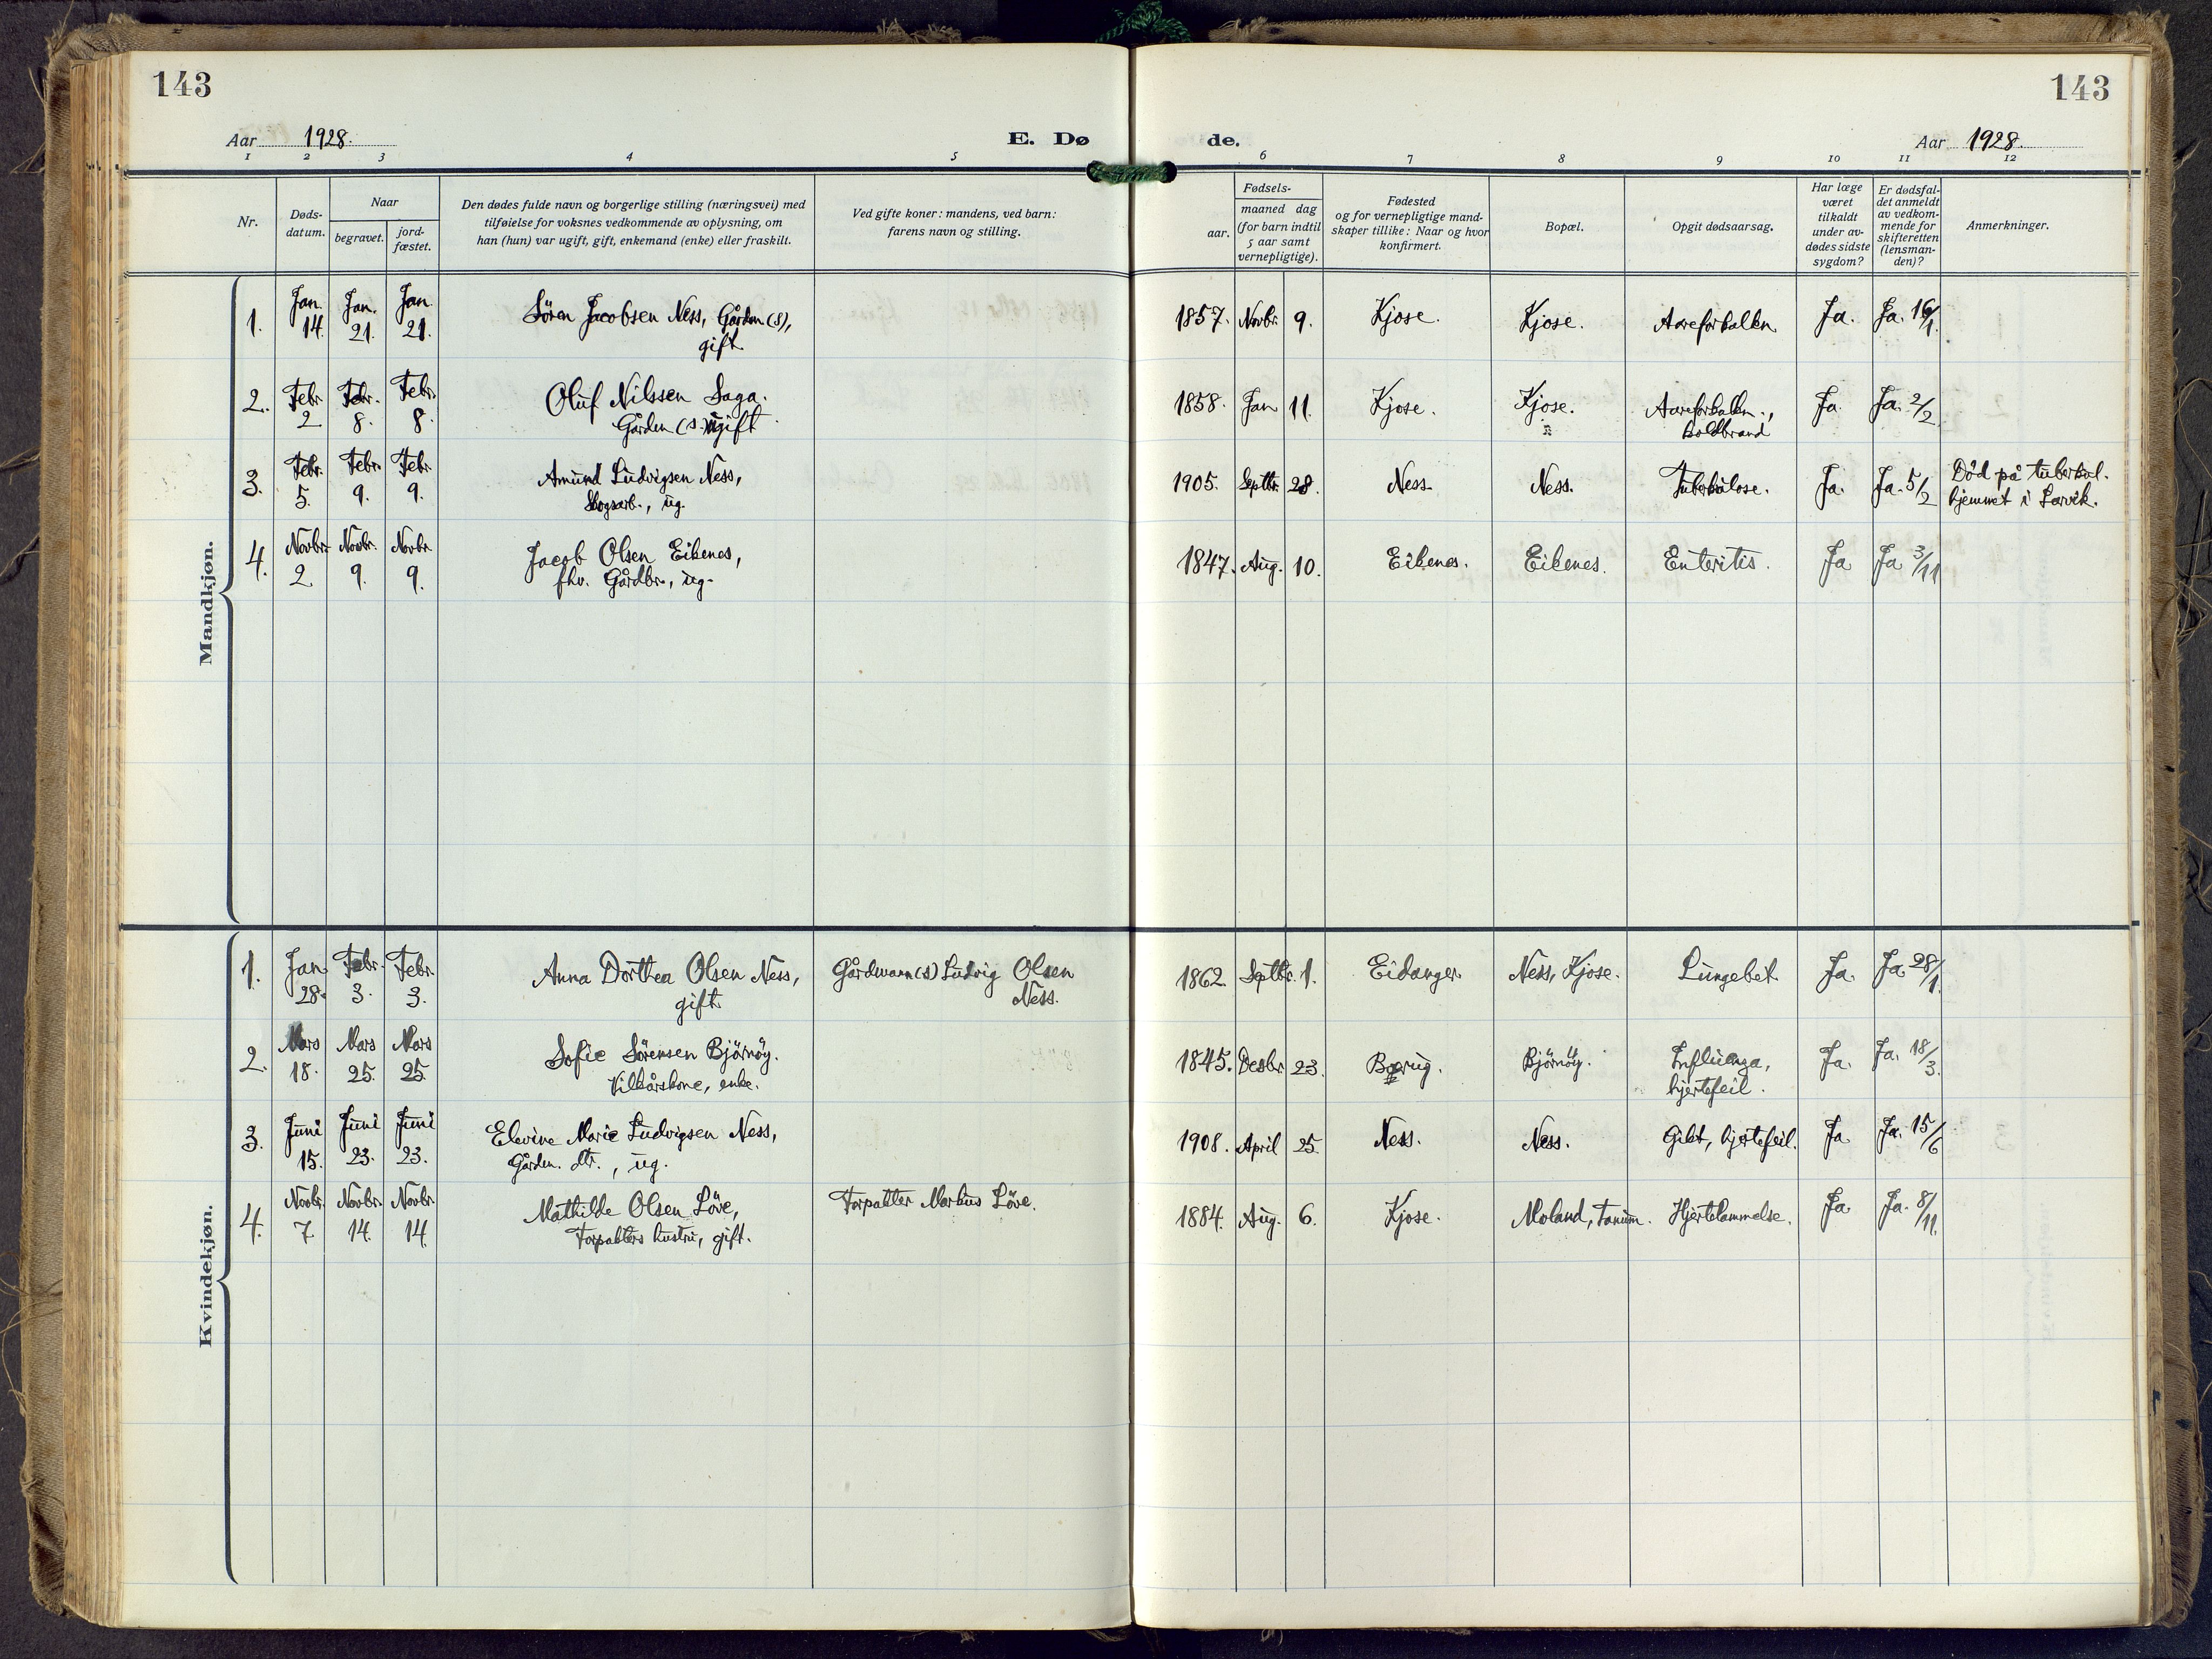 143
143
Aar 1928.
E. Dø
de.
Aar 1928.
1 2 3 4 5 6 7 8 9 10 11 12
Nr.
Døds-
datum.
Naar
begravet.
jord-
fæstet.
Den dødes fulde navn og borgerlige stilling (næringsvei) med
tilføielse for voksnes vedkommende av oplysning, om
han (hun) var ugift, gift, enkemand (enke) eller fraskilt.
Ved gifte koner: mandens, ved barn:
farens navn og stilling.
Fødsels-
aar.
maaned dag
(for barn indtil
5 aar samt
vernepligtige).
Fødested
og for vernepligtige mand-
skaper tillike: Naar og hvor
konfirmert.
Bopæl.
Opgit dødsaarsag.
Har læge
været
tilkaldt
under av-
dødes sidste
sygdom?
Er dødsfal-
det anmeldt
av vedkom-
mende for
skifteretten
(lensman-
den)?
Anmerkninger.
Mandkjøn.
1. Jan. 14. Jan. 21. Jan. 21. Sören Jacobsen Ness, Gården (s), 1857. Novbr. 9. Kjose. Kjose. Aareforkalkn. Ja. Ja. 16/1.
gift.
2. Febr. 2 Febr. 8. Febr. 8. Oluf Nilssen Saga. 1858. Jan 11. Kjose. Kjose. Aareforkalkn., Ja. Ja. 2/2
Gården (s.) ugift koldbrand
3. Febr. 5. Febr. 9. Febr. 9. Amund Ludvigsen Ness, 1905. Septbr. 28. Ness. Ness. Tuberkulose. Ja. Ja. 5/2 Död på tuberkul.
Skogsarb., ug. hjemmet i Larvik.
4. Novbr. 2. Novbr. 9. Novbr. 9. Jacob Olsen Eikenes, 1847. Aug. 10. Eikenes. Eikenes. Enteritis. Ja Ja 3/11
fhv. Gårdbr., ug.
Kvindekjøn.
1. Jan 28. Febr. 3. Febr. 3. Anna Dorthea Olsen Ness, Gårdmann (s) Ludvig Olsen 1862. Septbr. 1. Eidanger. Ness, Kjose. Lungebet. Ja. Ja 28/1.
gift. Ness.
2. Mars 18. Mars 25. Mars 25. Sofie Sörensen Björnöy. 1845. Desbr. 23. Björnöy. Influenza, Ja. Ja. 18/3.
Vilkårskone, enke. hjertefeil.
3. Juni 15. Juni 23. Juni 23. Elevine Marie Ludvigsen Ness, 1908. April 25. Ness. Ness. Gikt, hjertefeil. Ja. Ja. 15/6
Gården. dtr., ug.
4. Novbr. 7. Novbr. 14. Novbr. 14. Mathilde Olsen Löve, Forpakter Markus Löve. 1884. Aug. 6. Kjose. Moland, Tanum. Hjertelammelse. Ja. Ja. 8/11.
Forpakters hustru, gift.